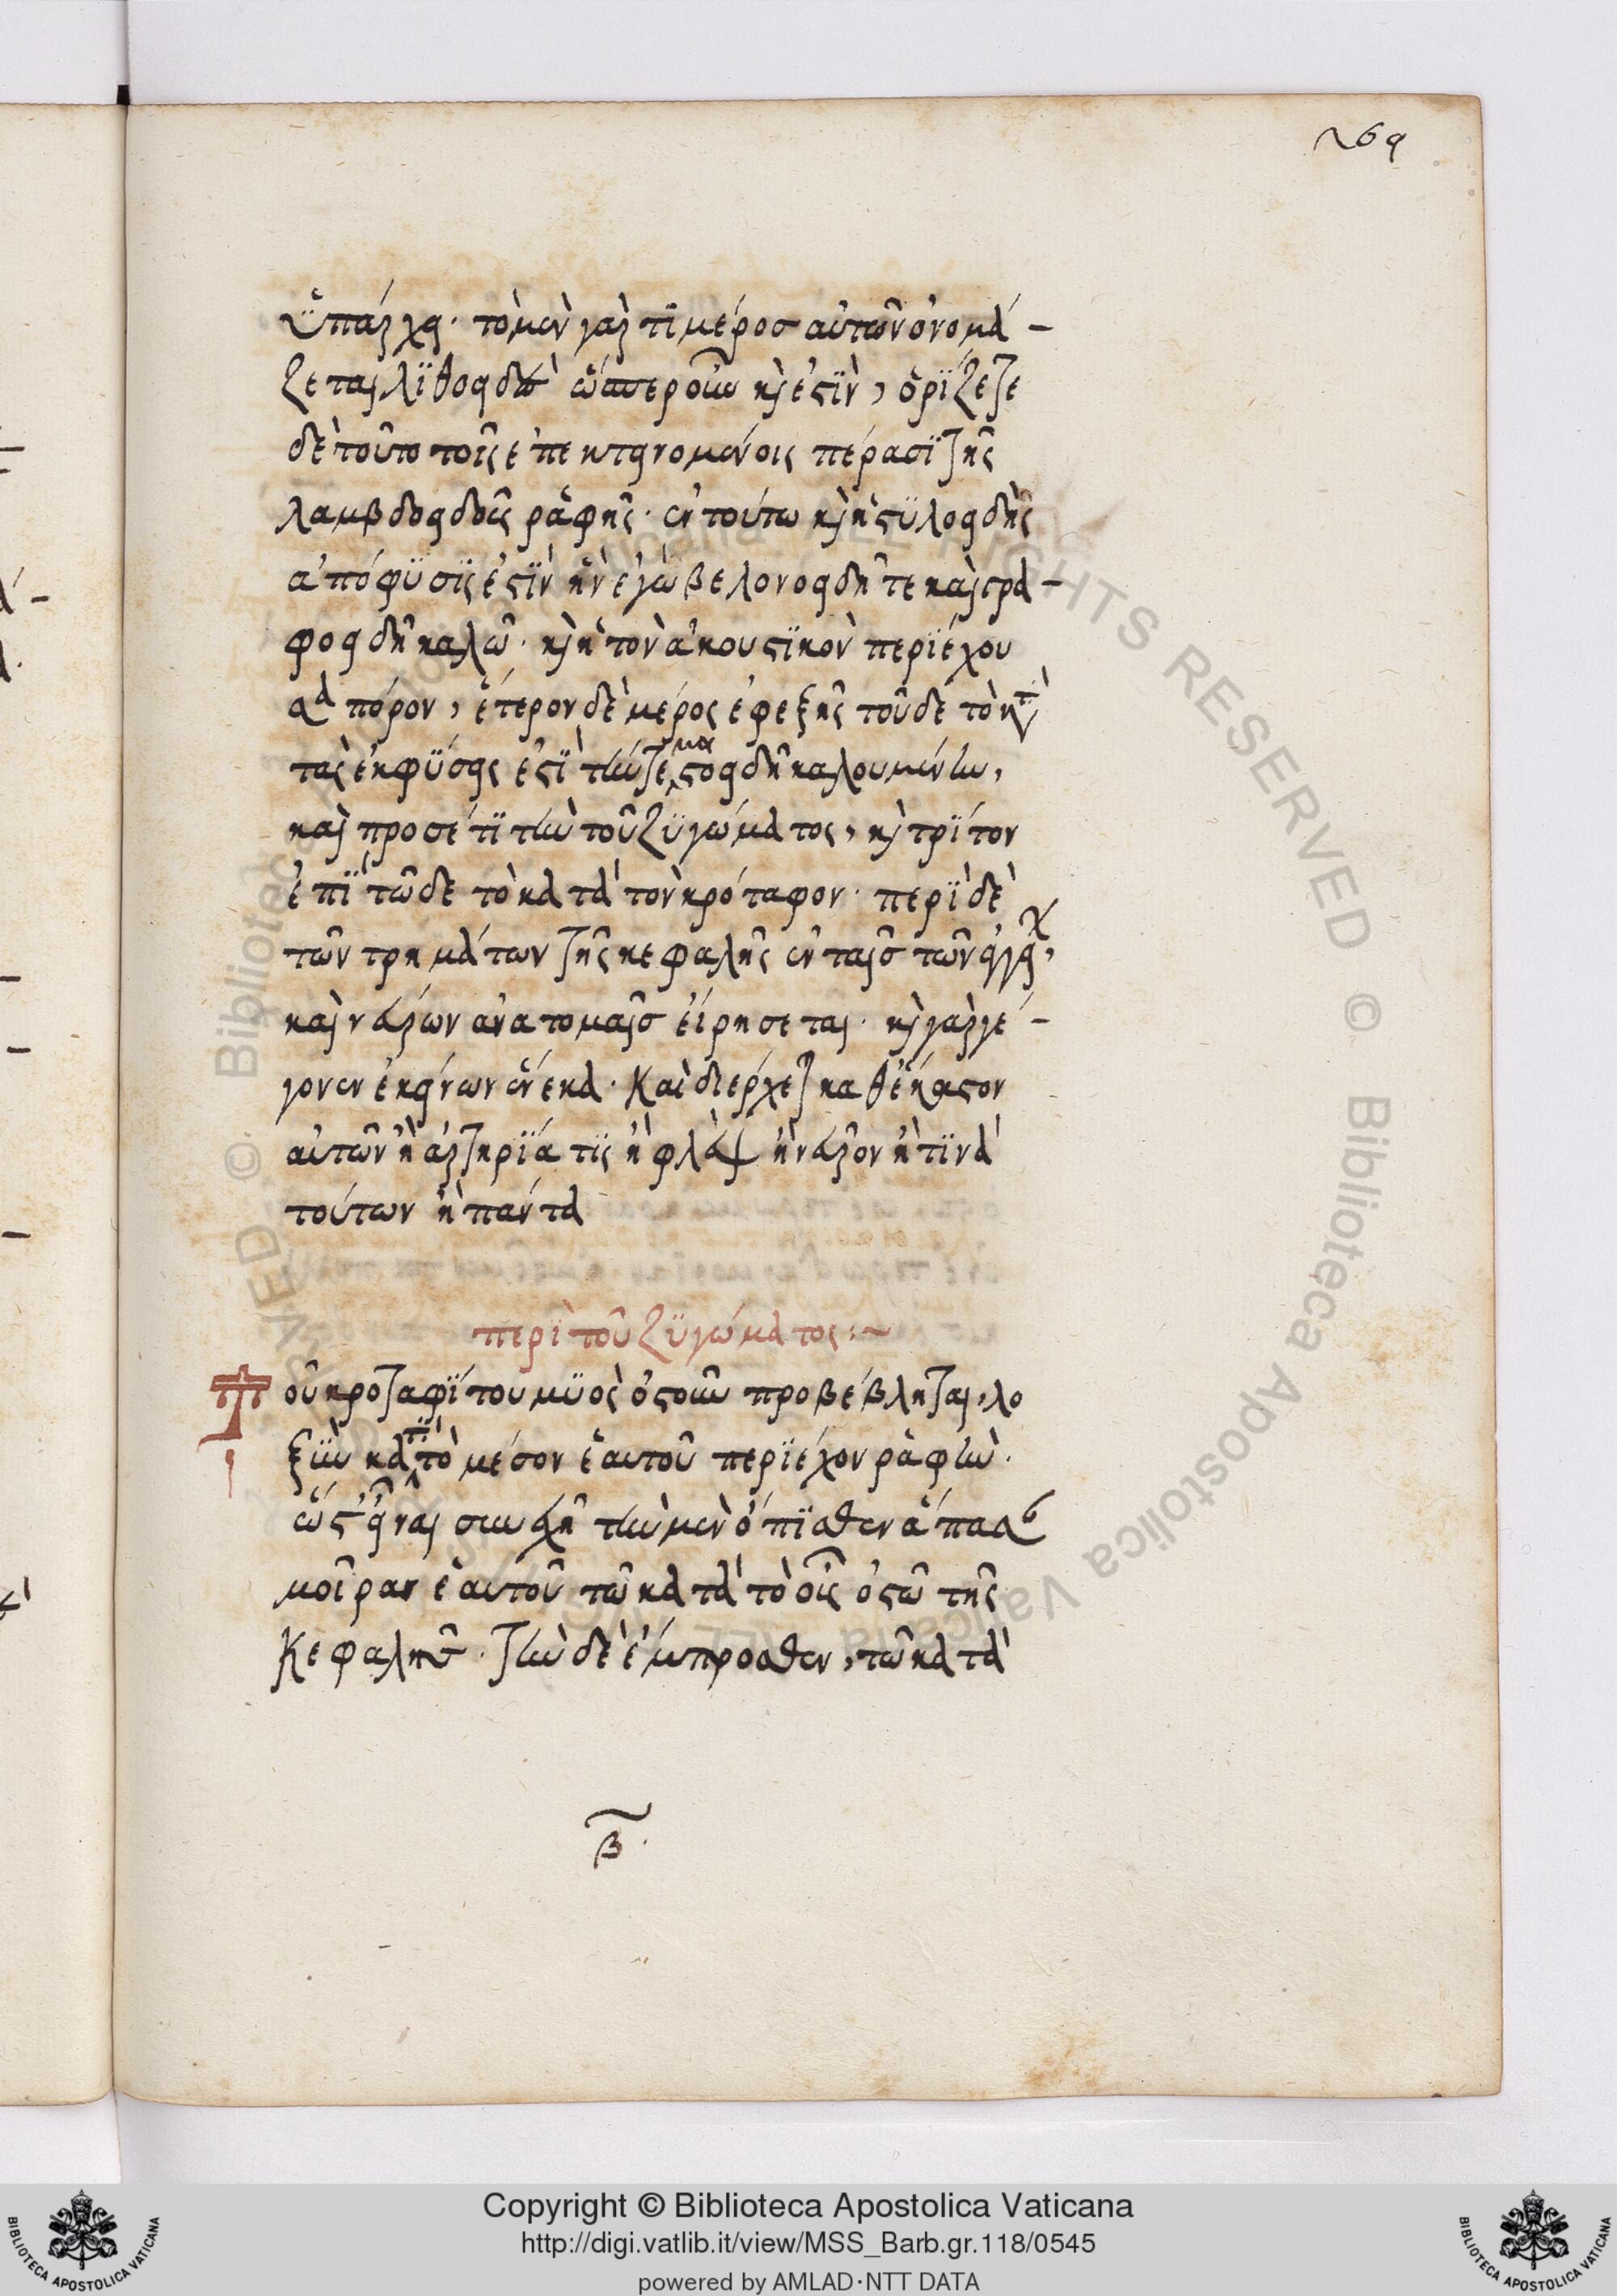 269
ὑπάρχει· τὸ μὲν γάρ τι μέρος αὐτῶν ὀνομά-
ζεται λιθοειδὲς ὥσπερ οὖν καὶ ἐστὶν, ὁρίζεται
δὲ τοῦτο τοῖς ἐπεκτεινομένοις πέρασι τῆς
λαμβδοειδοῦς ῥαφῆς· ἐν τούτω καὶ ἡ στυλοειδὴς
ἀπόφυσις ἐστὶν ἣν ἐγὼ βελονοειδῆ τε καὶ γρα-
φοειδῆ καλῶ· καὶ ἡ τὸν ἀκουστικὸν περιέχου
σα πόρον, ἕτερον δὲ μέρος ἐφεξῆς τοῦδε τὸ κατὰ
τὰς ἐκφύσεις ἐστὶ τήν τε μαστοειδῆ καλουμένην,
καὶ προσέτι τὴν τοῦ ζυγώματος, καὶ τρίτον
ἐπὶ τῶδε τὸ κατὰ τὸν κρόταφον· περὶ δὲ
τῶν τρημάτων τῆς κεφαλῆς ἐν ταῖς τῶν ἀγγείων,
καὶ νεύρων ἀνατομαῖς εἰρήσεται· καὶ γὰρ γέ-
γονεν ἐκείνων ἕνεκα· Καὶ διέρχεται καθ' ἕκαστον
αὐτῶν ἢ ἀρτηρία τις ἢ φλὲψ ἢ νεῦρον ἤ τινα
τούτων ἢ πάντα
περὶ τοῦ ζυγώματος:~
Τοῦ κροταφίτου μυὸς ὀστοῦν προβέβληται, λο
ξὴν κατὰ τὸ μέσον ἑαυτοῦ περιέχον ῥαφὴν·
ὥστ' εἶναι συνεχῆ τὴν μὲν ὄπισθεν ἅπασαν
μοῖραν ἑαυτοῦ τῶ κατὰ τὸ οὖς ὀστῶ τῆς
Κεφαλῆς· τὴν δὲ ἔμπροσθεν, τῶ κατὰ
β·
Copyright © Biblioteca Apostolica Vaticana
http://digi.vatlib.it/view/MSS_Barb.gr.118/0545
powered by AMLAD·NTT DATA